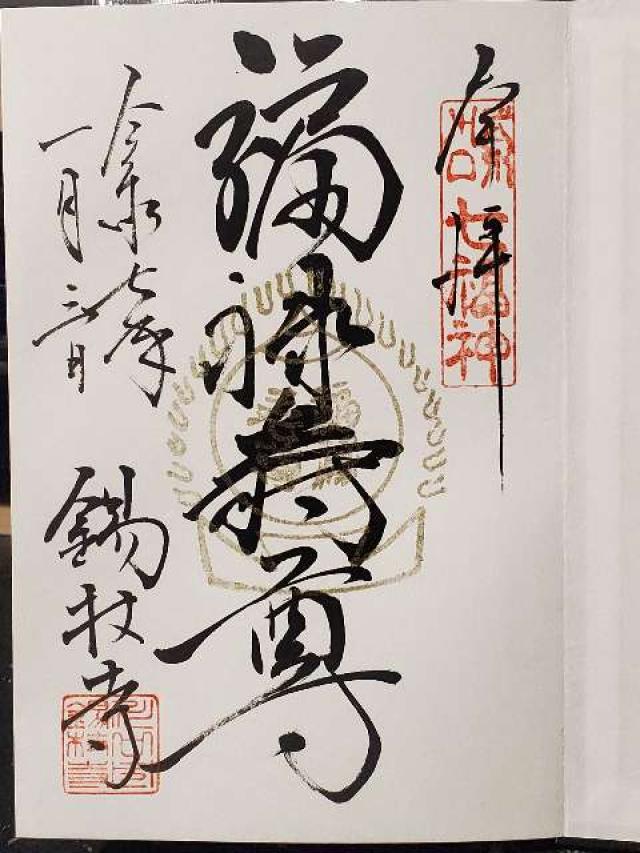 奉拝
七福神
福禄寿尊
令和七年
一月三日
錫杖寺